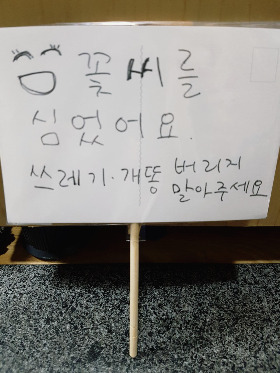 꽃씨를
심었어요.
쓰레기·개똥 버리지
말아주세요